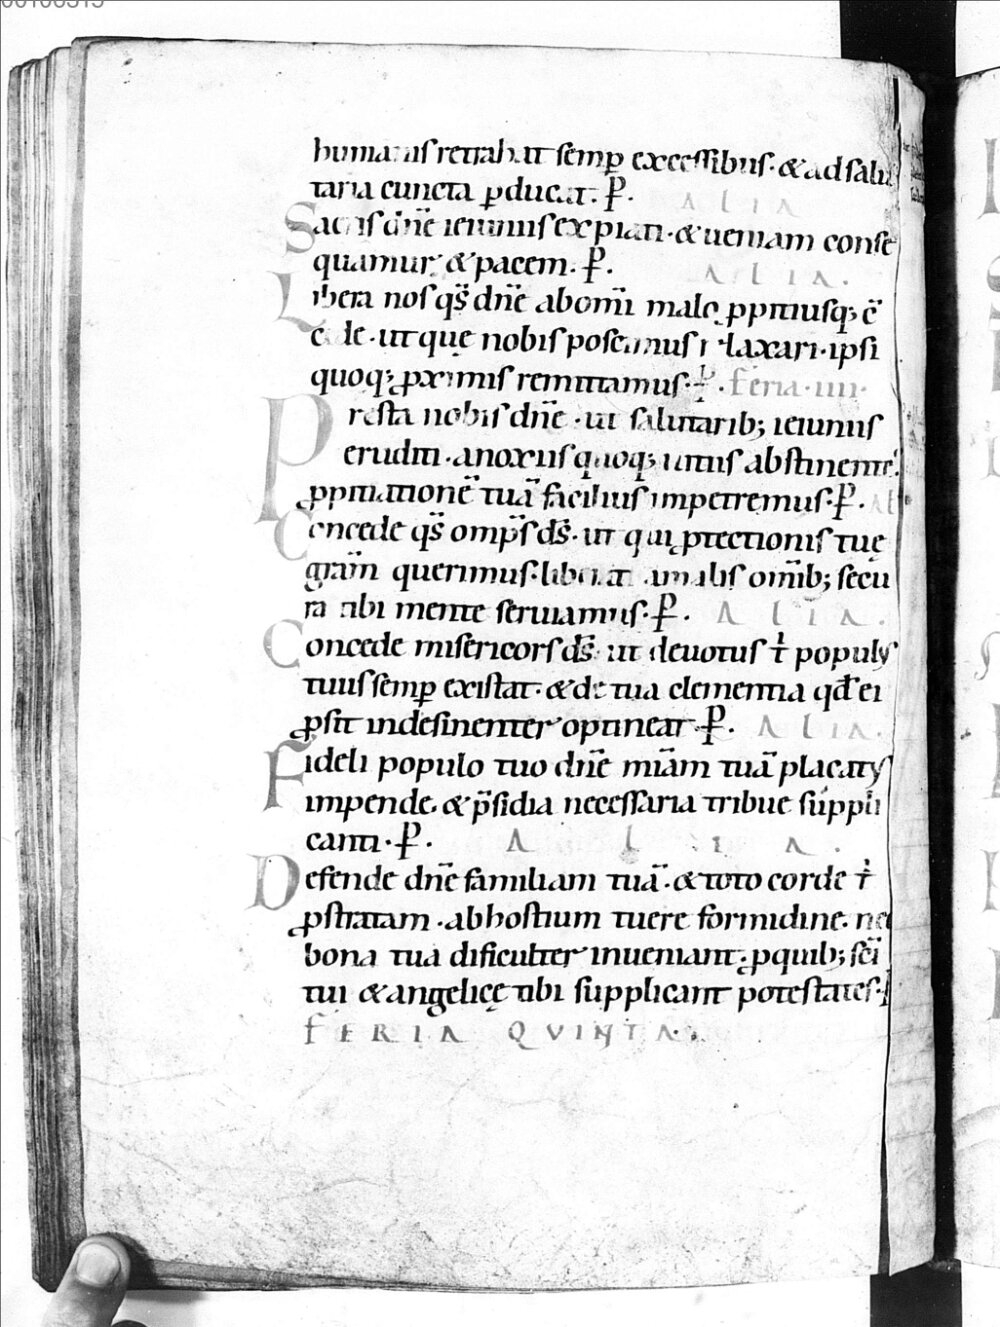 humanis retrahat semꝑ excessibus· & ad salu
taria cuncta ꝑducat· ꝑ· ALIA
Sacris dn̄e ieiuniis expiati· & ueniam conse
quamur & pacem· ꝑ· ALIA·
Libera nos qs̄ dn̄e ab om̄i malo ꝓpitiusq; c̄
cede· ut quę nobis poscimus relaxari· ipsi
quoq; ꝓximis remittamus· ꝑ· feria·iiii·
Presta nobis dn̄e· ut salutarib; ieiuniis
eruditi· a noxiis quoq; uitiis abstinente᷒
ꝓpitiationē tuā facilius impetremus· ꝑ· Al
Concede qs̄ omp̄s ds̄· ut qui ꝓtectionis tuę
gram̄ querimus· liberati a malis om̄ib; secu
ra tibi mente seruiamus· ꝑ· ALIA·
Concede misericors ds̄· ut deuotus t̉ populus
tuus semꝑ existat· & de tua clementia qđ ei
ꝓsit indesinenter optineat· ꝑ· ALIA·
Fideli populo tuo dn̄e miam̄ tuā placatus
impende· & p̄sidia necessaria tribue suppli
canti· ꝑ· ALIA·
Defende dn̄e familiam tuā· & toto corde t̉
ꝓstratam· ab hostium tuere formidine· nec
bona tua dificulter inueniant· ꝓ quib; sc̄i
tui & angelicę tibi supplicant potestates·
FERIA QVINTA·